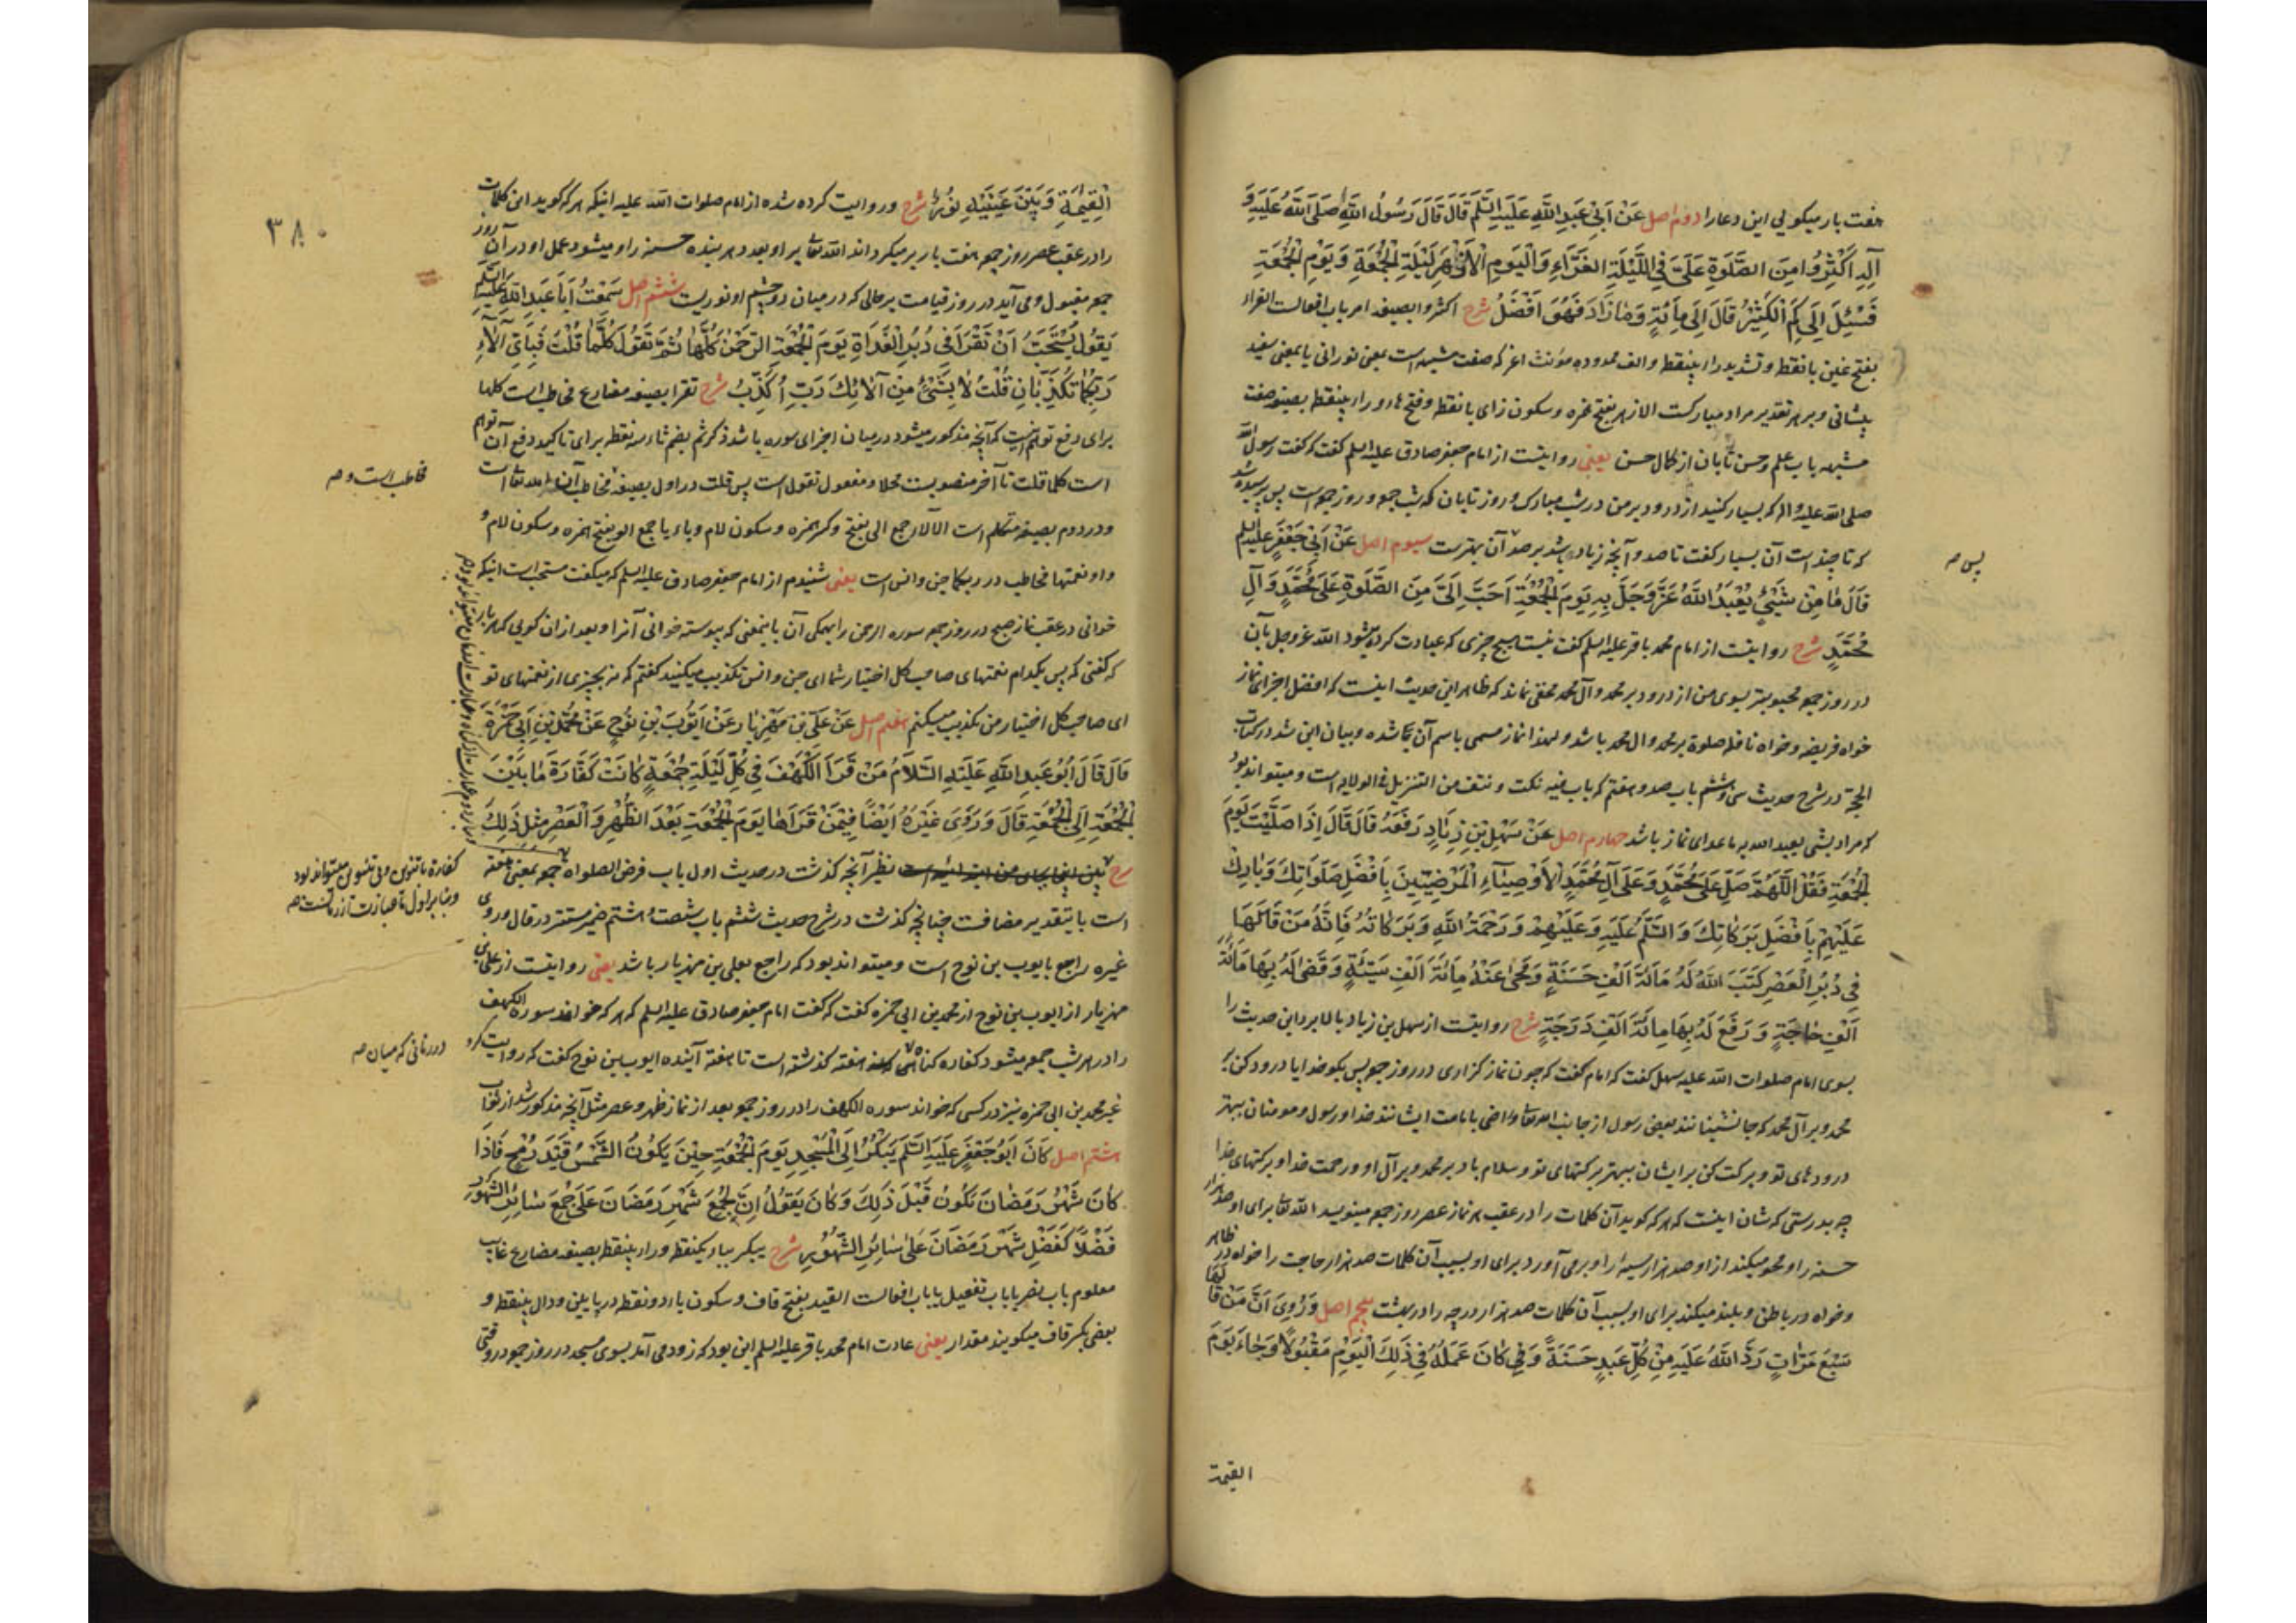 هفت بار میکویی این دعا را دوم اصل عَنْ اَبِی عَبْدِ اللَّهِ عَلَیْهِ السَّلَمُ قَالَ قَالَ رَسُولُ اللَّهِ صَلَّی اللَّهُ عَلَیْهِ وَ
آلِهِ اَکْثِرُوا مِنَ الصَّلَوةِ عَلَیَّ فِی اللَّیْلَةِ الغَرَّاءِ وَالْیَوْمِ الْاَزْهَرِ لَیْلَةِ الْجُمُعَةِ وَیَوْمِ الْجُمُعَةِ
فَسُئِلَ اِلَی کَمِ الْکَثِیْرُ قَالَ اِلَی مِائَةٍ وَمَا زَادَ فَهُوَ اَفْضَلُ شرح اکثروا بصیغه امر باب افعالست الغراء
بفتح غین بانقطه و تشدید راء بینقطه و الف ممدوده مؤنث اغر که صفت مشبهه است بمعنی نورانی یا بمعنی سفید
پیشانی و بر هر تقدیر مراد مبارکست الازهر بفتح همزه و سکون زای بانقطه و فتح هاء و راء بینقطه بصیغه صفت
مشبهه باب علم و حسن تابان از کمال حسن یعنی روایتست از امام جعفر صادق علیه السلم گفت که گفت رسول الله
صلی الله علیه و آله که بسیار کنید از درود بر من در شب مبارک و روز تابان که شب جمعه و روز جمعه است پس پرسیده شد
که تا چند است آن بسیار گفت تا صد و آنچه زیاد باشد بر صد آن بهترست سیوم اصل عَنْ اَبِی جَعْفَرٍ علیه السلم
قَالَ مَا مِنْ شَیْئٍ یُعْبَدُ اللَّهُ عَزَّ وَجَلَّ بِهِ یَوْمَ الْجُمُعَةِ اَحَبَّ اِلَیَّ مِنَ الصَّلَوةِ عَلَی مُحَمَّدٍ وَآلِ
مُحَمَّدٍ شرح روایتست از امام محمد باقر علیه السلم گفت نیست هیچ چیزی که عبادت کرده میشود الله عز و جل بآن
در روز جمعه محبوبتر بسوی من از درود بر محمد و آل محمد مخفی نماند که ظاهر این حدیث اینست که افضل اجزای نماز
خواه فریضه و خواه نافله صلوة بر محمد و آل محمد باشد و لهذا نماز مسمی باسم آن شده و بیان این شد در کتاب
الحجة در شرح حدیث سی و ششم باب صد و هفتم که باب فیه نکت و نتف من التنزیل فی الولایه است و میتواند بود
که مراد بشی یعبد الله به ماعدای نماز باشد چهارم اصل عَنْ سَهْلِ بْنِ زِیَادٍ رَفَعَهُ قَالَ قَالَ اِذَا صَلَّیْتَ یَوْمَ
الْجُمُعَةِ فَقُلْ اللَّهُمَّ صَلِّ عَلَی مُحَمَّدٍ وَعَلَی آلِ مُحَمَّدٍ الْاَوْصِیَآءِ الْمَرْضِیِّیْنَ بِاَفْضَلِ صَلَوَاتِکَ وَبَارِکْ
عَلَیْهِمْ بِاَفْضَلِ بَرَکَاتِکَ وَالسَّلَمُ عَلَیْهِ وَعَلَیْهِمْ وَرَحْمَةُ اللَّهِ وَبَرَکَاتُهُ فَاِنَّهُ مَنْ قَالَهَا
فِی دُبُرِ الْعَصْرِ کَتَبَ اللَّهُ لَهُ مِائَةَ اَلْفِ حَسَنَةٍ وَمَحَی عَنْهُ مِائَةَ اَلْفِ سَیِّئَةٍ وَقَضَی لَهُ بِهَا مِائَةَ
اَلْفِ حَاجَةٍ وَرَفَعَ لَهُ بِهَا مِائَةَ اَلْفِ دَرَجَةٍ شرح روایتست از سهل بن زیاد بالا برد این حدیث را
بسوی امام صلوات الله علیه سهل گفت که امام گفت که چون نماز گزاری در روز جمعه پس بکو خدایا درود کن بر
محمد و بر آل محمد که جانشینانند یعنی رسول از جانب الله تعالی راضی بامامت ایشانند خدا و رسول و مومنان ببهتر
درودهای تو و برکت کن بر ایشان ببهتر برکتهای تو و سلام باد بر محمد و بر آل او و رحمت خدا و برکتهای خدا
چه بدرستی که شان اینست که هر که کوید آن کلمات را در عقب نماز عصر روز جمعه مینویسد الله تعالی برای او صد هزار
حسنه را و محو میکند از او صد هزار سیئه را و برمی آورد برای او بسبب آن کلمات صد هزار حاجت را خواه در ظاهر
و خواه در باطن و بلند میکند برای او بسبب آن کلمات صد هزار درجه را در بهشت پنجم اصل وَرُوِیَ اَنَّ مَنْ قَالَهَا
سَبْعَ مَرَّاتٍ رَدَّ اللَّهُ عَلَیْهِ مِنْ کُلِّ عَبْدٍ حَسَنَةً وَ کَانَ عَمَلُهُ فِی ذَلِکَ الْیَوْمِ مَقْبُولًا وَجَاءَ یَوْمَ
القیمة
پس صه
۳۸۰
الْقِیمَةِ وَبَیْنَ عَیْنَیْهِ نُورٌ شرح و روایت کرده شده از امام صلوات الله علیه اینکه هر که کوید این کلمات
را در عقب عصر روز جمعه هفت بار بر میکرداند الله تعالی بر او بعدد هر بنده حسنه را و میشود عمل او در آن روز
جمعه مقبول و می آید در روز قیامت بر حالی که در میان دو چشم او نوریست ششم اصل سَمِعْتُ اَبَا عَبْدِ اللَّهِ عَلَیْهِ السَّلَم
یَقُولُ یُسْتَحَبُّ اَنْ تَقْرَاَ فِی دُبُرِ الْغَدَاةِ یَوْمَ الْجُمُعَةِ الرَّحْمَنَ کُلَّهَا ثُمَّ تَقُولُ کُلَّمَا قُلْتَ فَبِاَیِّ آلَآءِ
رَبِّکُمَا تُکَذِّبَانِ قُلْتُ لَا بِشَیْئٍ مِنْ آلَائِکَ رَبِّ اُکَذِّبُ شرح تقرا بصیغه مضارع مخاطب است کلها
برای دفع توهم اینست که آنچه مذکور میشود در میان اجزای سوره باشد ذکر ثم بضم ثاء سه نقطه برای تاکید دفع آن توهم
است کلما قلت تا آخر منصوبست محلا و مفعول تقول است پس قلت در اول بصیغه مخاطب است
و در دوم بصیغه متکلم است الآلاء جمع الی بفتح و کسر همزه و سکون لام و یاء یا جمع الو بفتح همزه و سکون لام و
واو نعمتها مخاطب در ربکما جن و انس است یعنی شنیدم از امام جعفر صادق علیه السلم که میکفت مستحب است اینکه
خوانی در عقب نماز صبح در روز جمعه سوره الرحمن را همکی آن باینمعنی که پیوسته خوانی آنرا و بعد از آن کویی که هر بار
که گفتی که پس بکدام نعمتهای صاحب کل اختیار شما ای جن و انس تکذیب میکنید گفتم که نه بچیزی از نعمتهای تو
ای صاحب کل اختیار من تکذیب میکنم هفتم اصل عَنْ عَلِیِّ بْنِ مَهْزِیَارَ عَنْ اَیُّوبَ بْنِ نُوحٍ عَنْ مُحَمَّدِ بْنِ اَبِی حَمْزَةَ
قَالَ قَالَ اَبُو عَبْدِ اللَّهِ عَلَیْهِ السَّلَامُ مَنْ قَرَاَ الْکَهْفَ فِی کُلِّ لَیْلَةِ جُمُعَةٍ کَانَتْ کَفَّارَةَ مَا بَیْنَ
الْجُمُعَةِ اِلَی الْجُمُعَةِ قَالَ وَرَوَی غَیْرُهُ اَیْضًا فِیْمَنْ قَرَاَهَا یَوْمَ الْجُمُعَةِ بَعْدَ الظُّهْرِ وَالْعَصْرِ مِثْلَ ذَلِکَ
شرح نظیر آنچه کذشت در حدیث اول باب فرض الصلواة جمعه بمعنی هفته
است یا بتقدیر مضافست چنانچه کذشت در شرح حدیث ششم باب شصت و هشتم ضمیر مستتر در قال و روی
غیره راجع بایوب بن نوح است و میتواند بود که راجع بعلی بن مهزیار باشد یعنی روایتست از علی بن
مهزیار از ایوب بن نوح از محمد بن ابی حمزه گفت که گفت امام جعفر صادق علیه السلم که هر که خواند سوره الکهف
را در هر شب جمعه میشود کفاره کناهی هفته کذشته است تا هفته آینده ایوب بن نوح گفت که روایت کرد
غیر محمد بن ابی حمزه نیز در کسی که خواند سوره الکهف را در روز جمعه بعد از نماز ظهر و عصر مثل آنچه مذکور شد از ثواب
هشتم اصل کَانَ اَبُو جَعْفَرٍ عَلَیْهِ السَّلَمُ یُبَکِّرُ اِلَی الْمَسْجِدِ یَوْمَ الْجُمُعَةِ حِیْنَ یَکُونُ الشَّمْسُ قِیْدَ رُمْحٍ فَاِذَا
کَانَ شَهْرُ رَمَضَانَ یَکُونُ قَبْلَ ذَلِکَ وَکَانَ یَقُولُ اِنَّ لِجُمَعِ شَهْرِ رَمَضَانَ عَلَی جُمَعِ سَائِرِ الشُّهُورِ
فَضْلًا کَفَضْلِ شَهْرِ رَمَضَانَ عَلَی سَائِرِ الشُّهُوْرِ شرح یبکر بباء یکنقطه و راء بینقطه بصیغه مضارع غایب
معلوم باب نصر یا باب تفعیل یا باب افعالست القید بفتح قاف و سکون یاء دو نقطه در پایین و دال بینقطه و
بعضی بکسر قاف میکویند مقدار یعنی عادت امام محمد باقر علیه السلم این بود که زود می آمد بسوی مسجد در روز جمعه در وقتی
مخاطب است و صه
کفاره با تنوین و بی تنوین میتواند بود
و بنابر اول ما عبارت از زمانست صه
در زمانی که میان صه